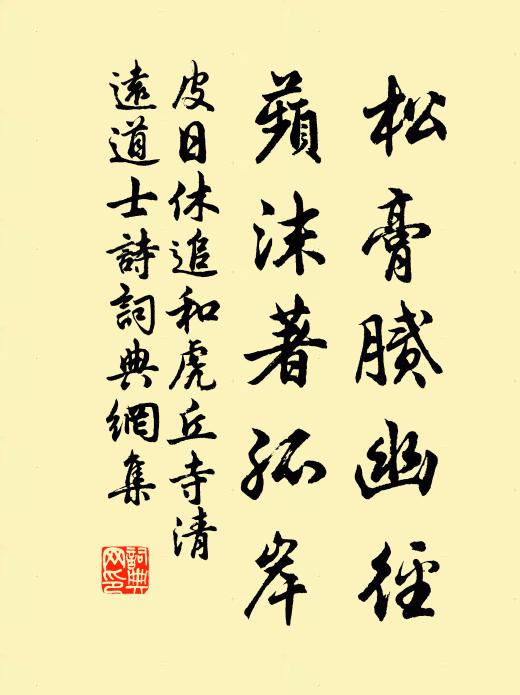 松膏膩幽徑
蘋沫著孤岸
皮日休追和虎丘寺清
遠道士詩詞典網集
詞典
網印